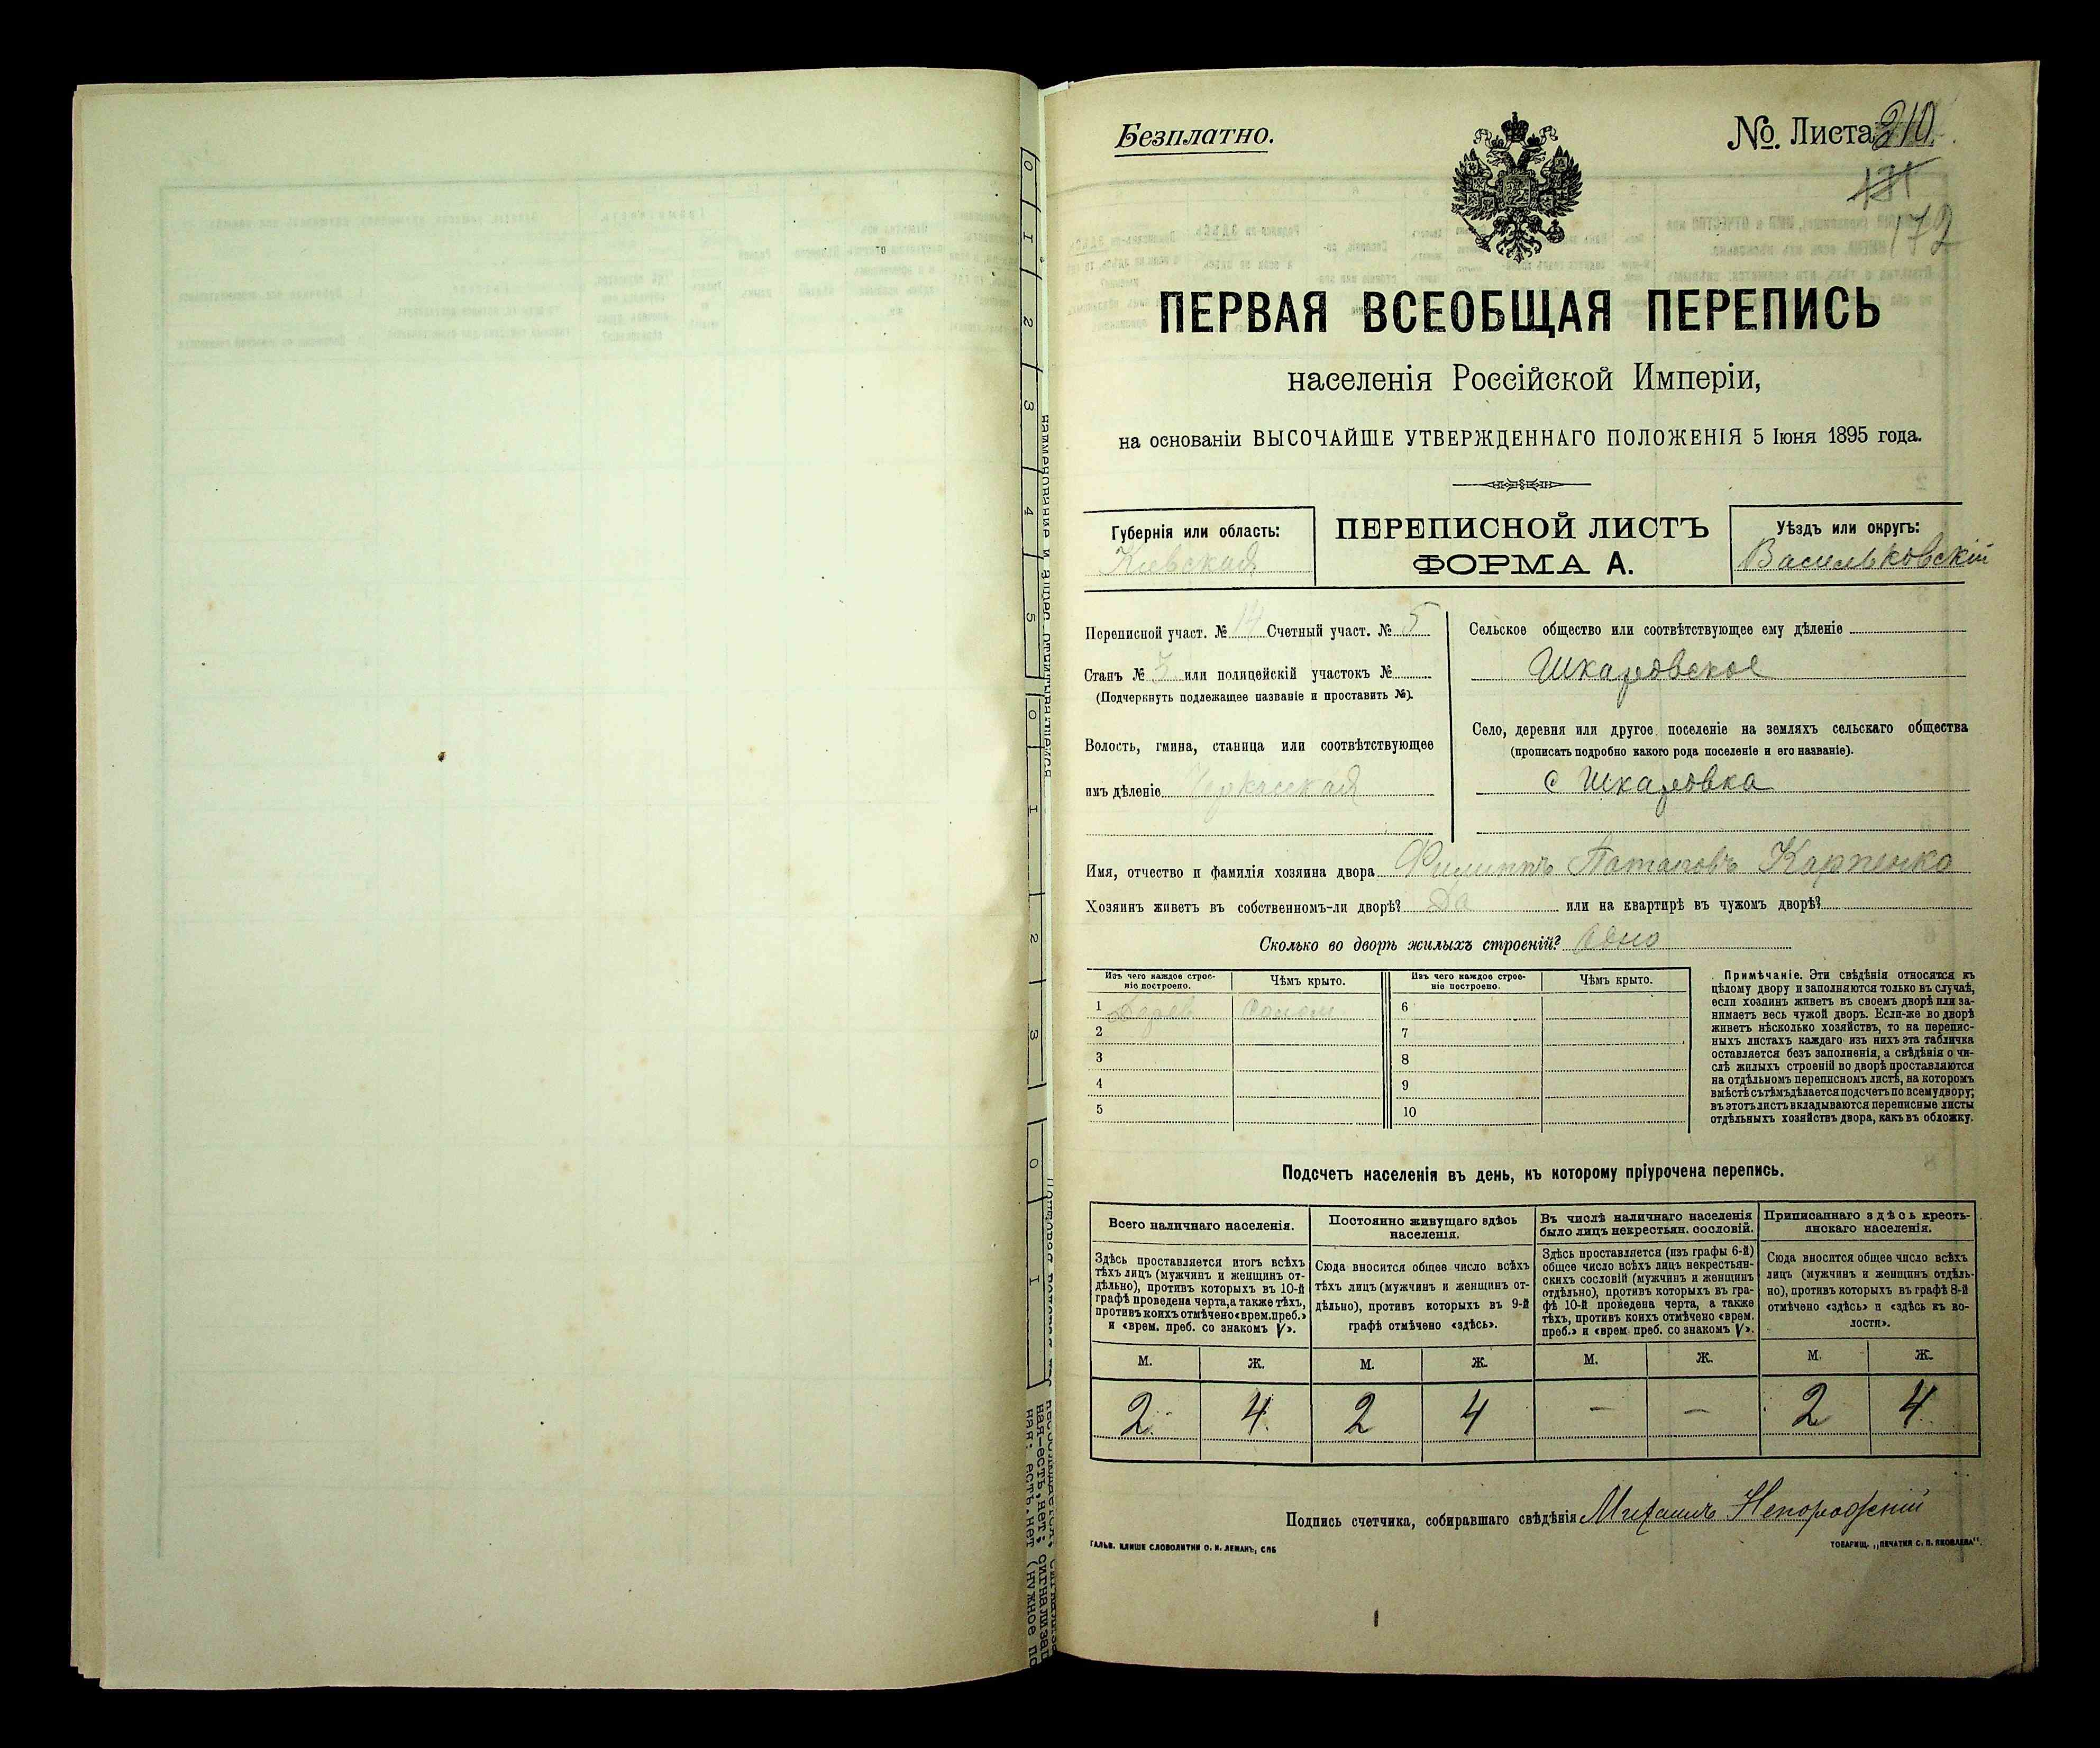 Безплатно.
№. Листа 210.
171
172
ПЕРВАЯ ВСЕОБЩАЯ ПЕРЕПИСЬ
населенія Россійской Имперіи,
на основаніи ВЫСОЧАЙШЕ УТВЕРЖДЕННАГО ПОЛОЖЕНІЯ 5 Іюня 1895 года.
Губернія или область:
Кіевская
ПЕРЕПИСНОЙ ЛИСТЪ
ФОРМА А.
Уѣздъ или округъ:
Васильковскій
Переписной участ. № 14 Счетный участ. № 5
Станъ № 3 или полицейскій участокъ №
(Подчеркнуть подлежащее названіе и проставить №).
Волость, гмина, станица или соотвѣтствующее
имъ дѣленіе Черкасская
Сельское общество или соотвѣтствующее ему дѣленіе
Шкаровское
Село, деревня или другое поселеніе на земляхъ сельскаго общества
(прописать подробно какого рода поселеніе и его названіе).
с Шкаровка
Имя, отчество и фамилія хозяина двора Филиппъ Потаповъ Карпенко
Хозяинъ живетъ въ собственномъ-ли дворѣ? Да или на квартирѣ въ чужомъ дворѣ?
Сколько во дворѣ жилыхъ строеній? Одно
Изъ чего каждое строе-
ніе построено.
Чѣмъ крыто.
Изъ чего каждое строе-
ніе построено.
Чѣмъ крыто.
1 Дерев Солом 6
2 7
3 8
4 9
5 10
Примѣчаніе. Эти свѣдѣнія относятся къ
цѣлому двору и заполняются только въ случаѣ,
если хозяинъ живетъ въ своемъ дворѣ или за-
нимаетъ весь чужой дворъ. Если-же во дворѣ
живетъ нѣсколько хозяйствъ, то на перепис-
ныхъ листахъ каждаго изъ нихъ эта табличка
оставляется безъ заполненія, а свѣдѣнія о чи-
слѣ жилыхъ строеній во дворѣ проставляются
на отдѣльномъ переписномъ листѣ, на которомъ
вмѣстѣ съ тѣмъ дѣлается подсчетъ по всему двору;
въ этотъ листъ вкладываются переписные листы
отдѣльныхъ хозяйствъ двора, какъ въ обложку.
Подсчетъ населенія въ день, къ которому пріурочена перепись.
Всего наличнаго населенія.
Здѣсь проставляется итогъ всѣхъ
тѣхъ лицъ (мужчинъ и женщинъ от-
дѣльно), противъ которыхъ въ 10-й
графѣ проведена черта, а также тѣхъ,
противъ коихъ отмѣчено «врем. преб.»
и «врем. преб. со знакомъ V».
Постоянно живущаго здѣсь
населенія.
Сюда вносится общее число всѣхъ
тѣхъ лицъ (мужчинъ и женщинъ от-
дѣльно), противъ которыхъ въ 9-й
графѣ отмѣчено «здѣсь».
Въ числѣ наличнаго населенія
было лицъ некрестьян. сословій.
Здѣсь проставляется (изъ графы 6-й)
общее число всѣхъ лицъ некрестьян-
скихъ сословій (мужчинъ и женщинъ
отдѣльно), противъ которыхъ въ гра-
фѣ 10-й проведена черта, а также
тѣхъ, противъ коихъ отмѣчено «врем.
преб.» и «врем. преб. со знакомъ V».
Приписаннаго здѣсь кресть-
янскаго населенія.
Сюда вносится общее число всѣхъ
лицъ (мужчинъ и женщинъ отдѣль-
но), противъ которыхъ въ графѣ 8-й
отмѣчено «здѣсь» и «здѣсь къ во-
лости».
М. Ж. М. Ж. М. Ж. М. Ж.
2 4 2 4 — — 2 4
Подпись счетчика, собиравшаго свѣдѣнія Михаилъ
ГАЛЬВ. КЛИШЕ СЛОВОЛИТНИ О. И. ЛЕМАНЪ, СПБ
ТОВАРИЩ. „ПЕЧАТНЯ С. П. ЯКОВЛЕВА".